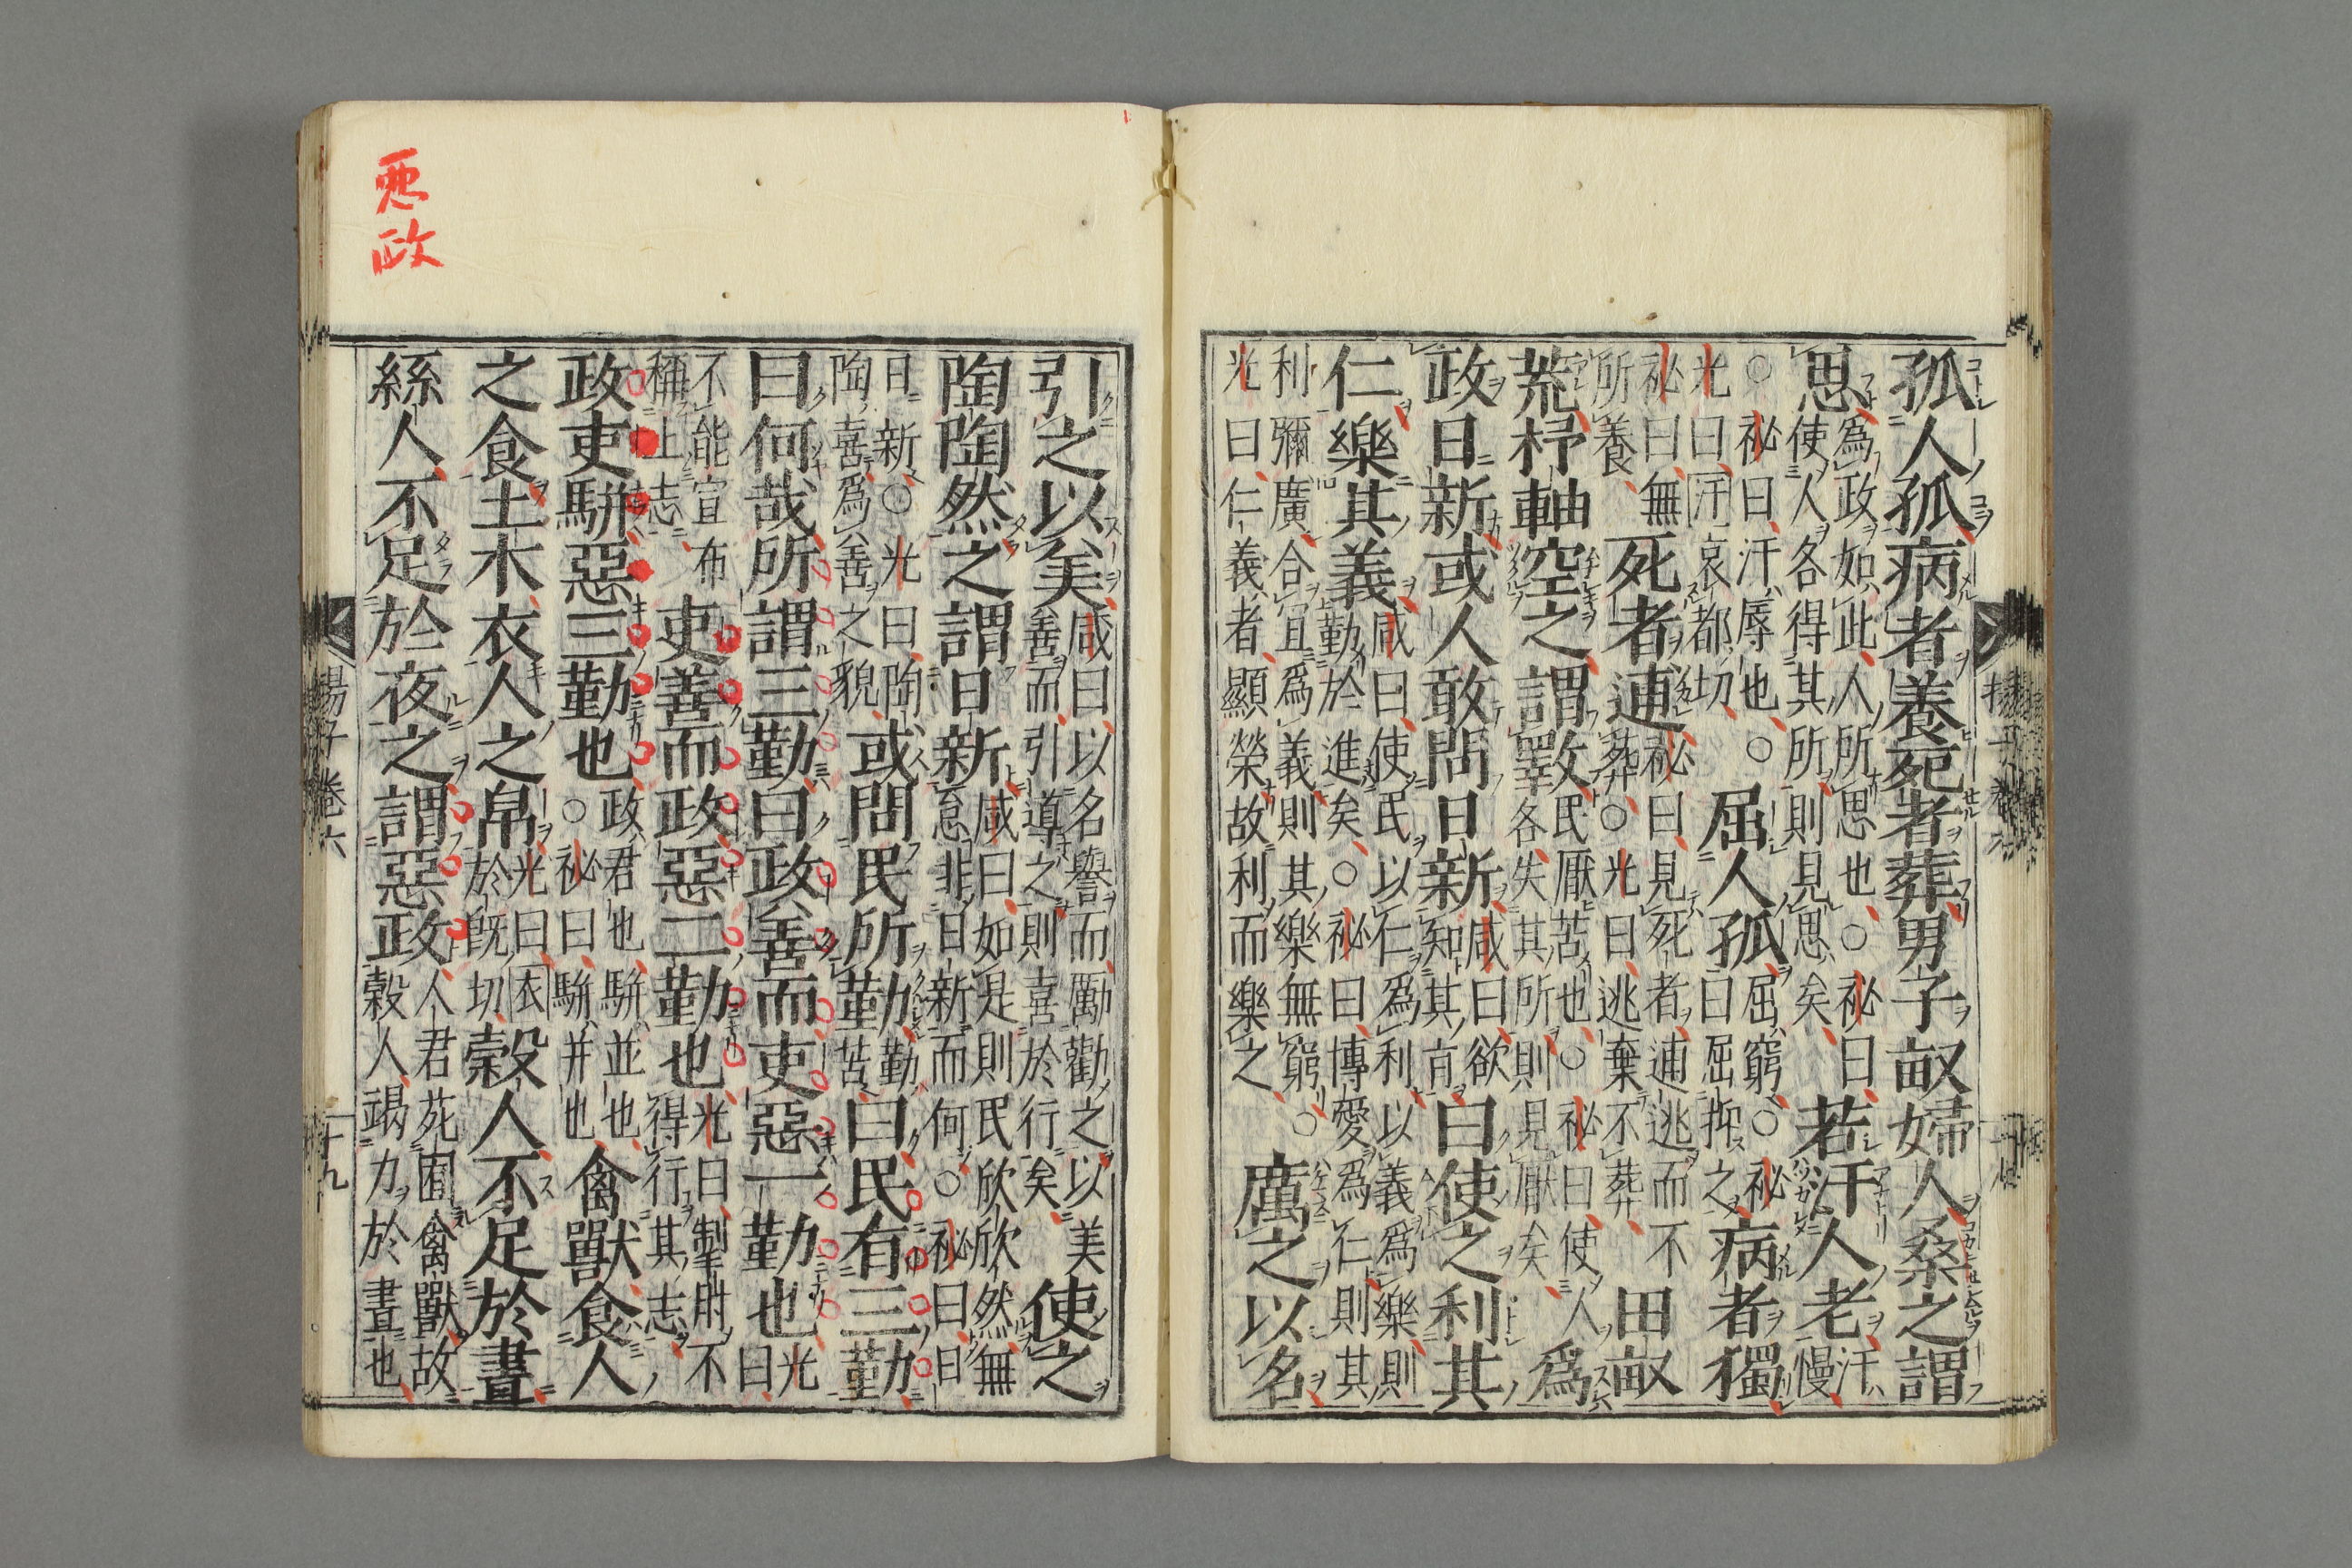 孤人孤病者養死者葬男子畝婦人桑之謂
思爲政如此人所思也○祕曰使人各得其所則見思矣若汙人老汙慢
○祕曰汙辱也○光曰汙哀都切屈人孤屈窮○祕曰屈抑之病者獨
祕曰無所養死者逋祕曰見死者逋逃而不葬○光曰逃棄不葬田畝
荒杼軸空之謂斁民厭苦也○祕曰使人各失其所則見厭矣爲
政日新或人敢問日新咸曰欲知其肓曰使之利其
仁樂其義咸曰使民以仁爲利以義爲樂則勤於進矣○祕曰博愛爲仁則其
利彌廣合宜爲義則其樂無窮○光曰仁義者顯榮故利而樂之厲之以名
引之以美咸曰以名譽而勵勸之以美善而引導之則喜於行矣使之
陶陶然之謂日新咸曰如是則民欣欣然無怠非日新而何○祕曰日
日新○光曰陶陶喜爲善之貌或問民所勤勤苦曰民有三勤
曰何哉所謂三勤曰政善而吏惡一勤也光曰
不能宣布稱上志吏善而政惡二勤也光曰掣肘不得行其志
政吏駢惡三勤也政君也駢並也○祕曰駢并也禽獸食人
之食土木衣人之帛光曰衣於既切穀人不足於晝
絲人不足於夜之謂惡政人君苑囿禽獸故穀人竭力於晝也
揚子卷六
十九
惡政